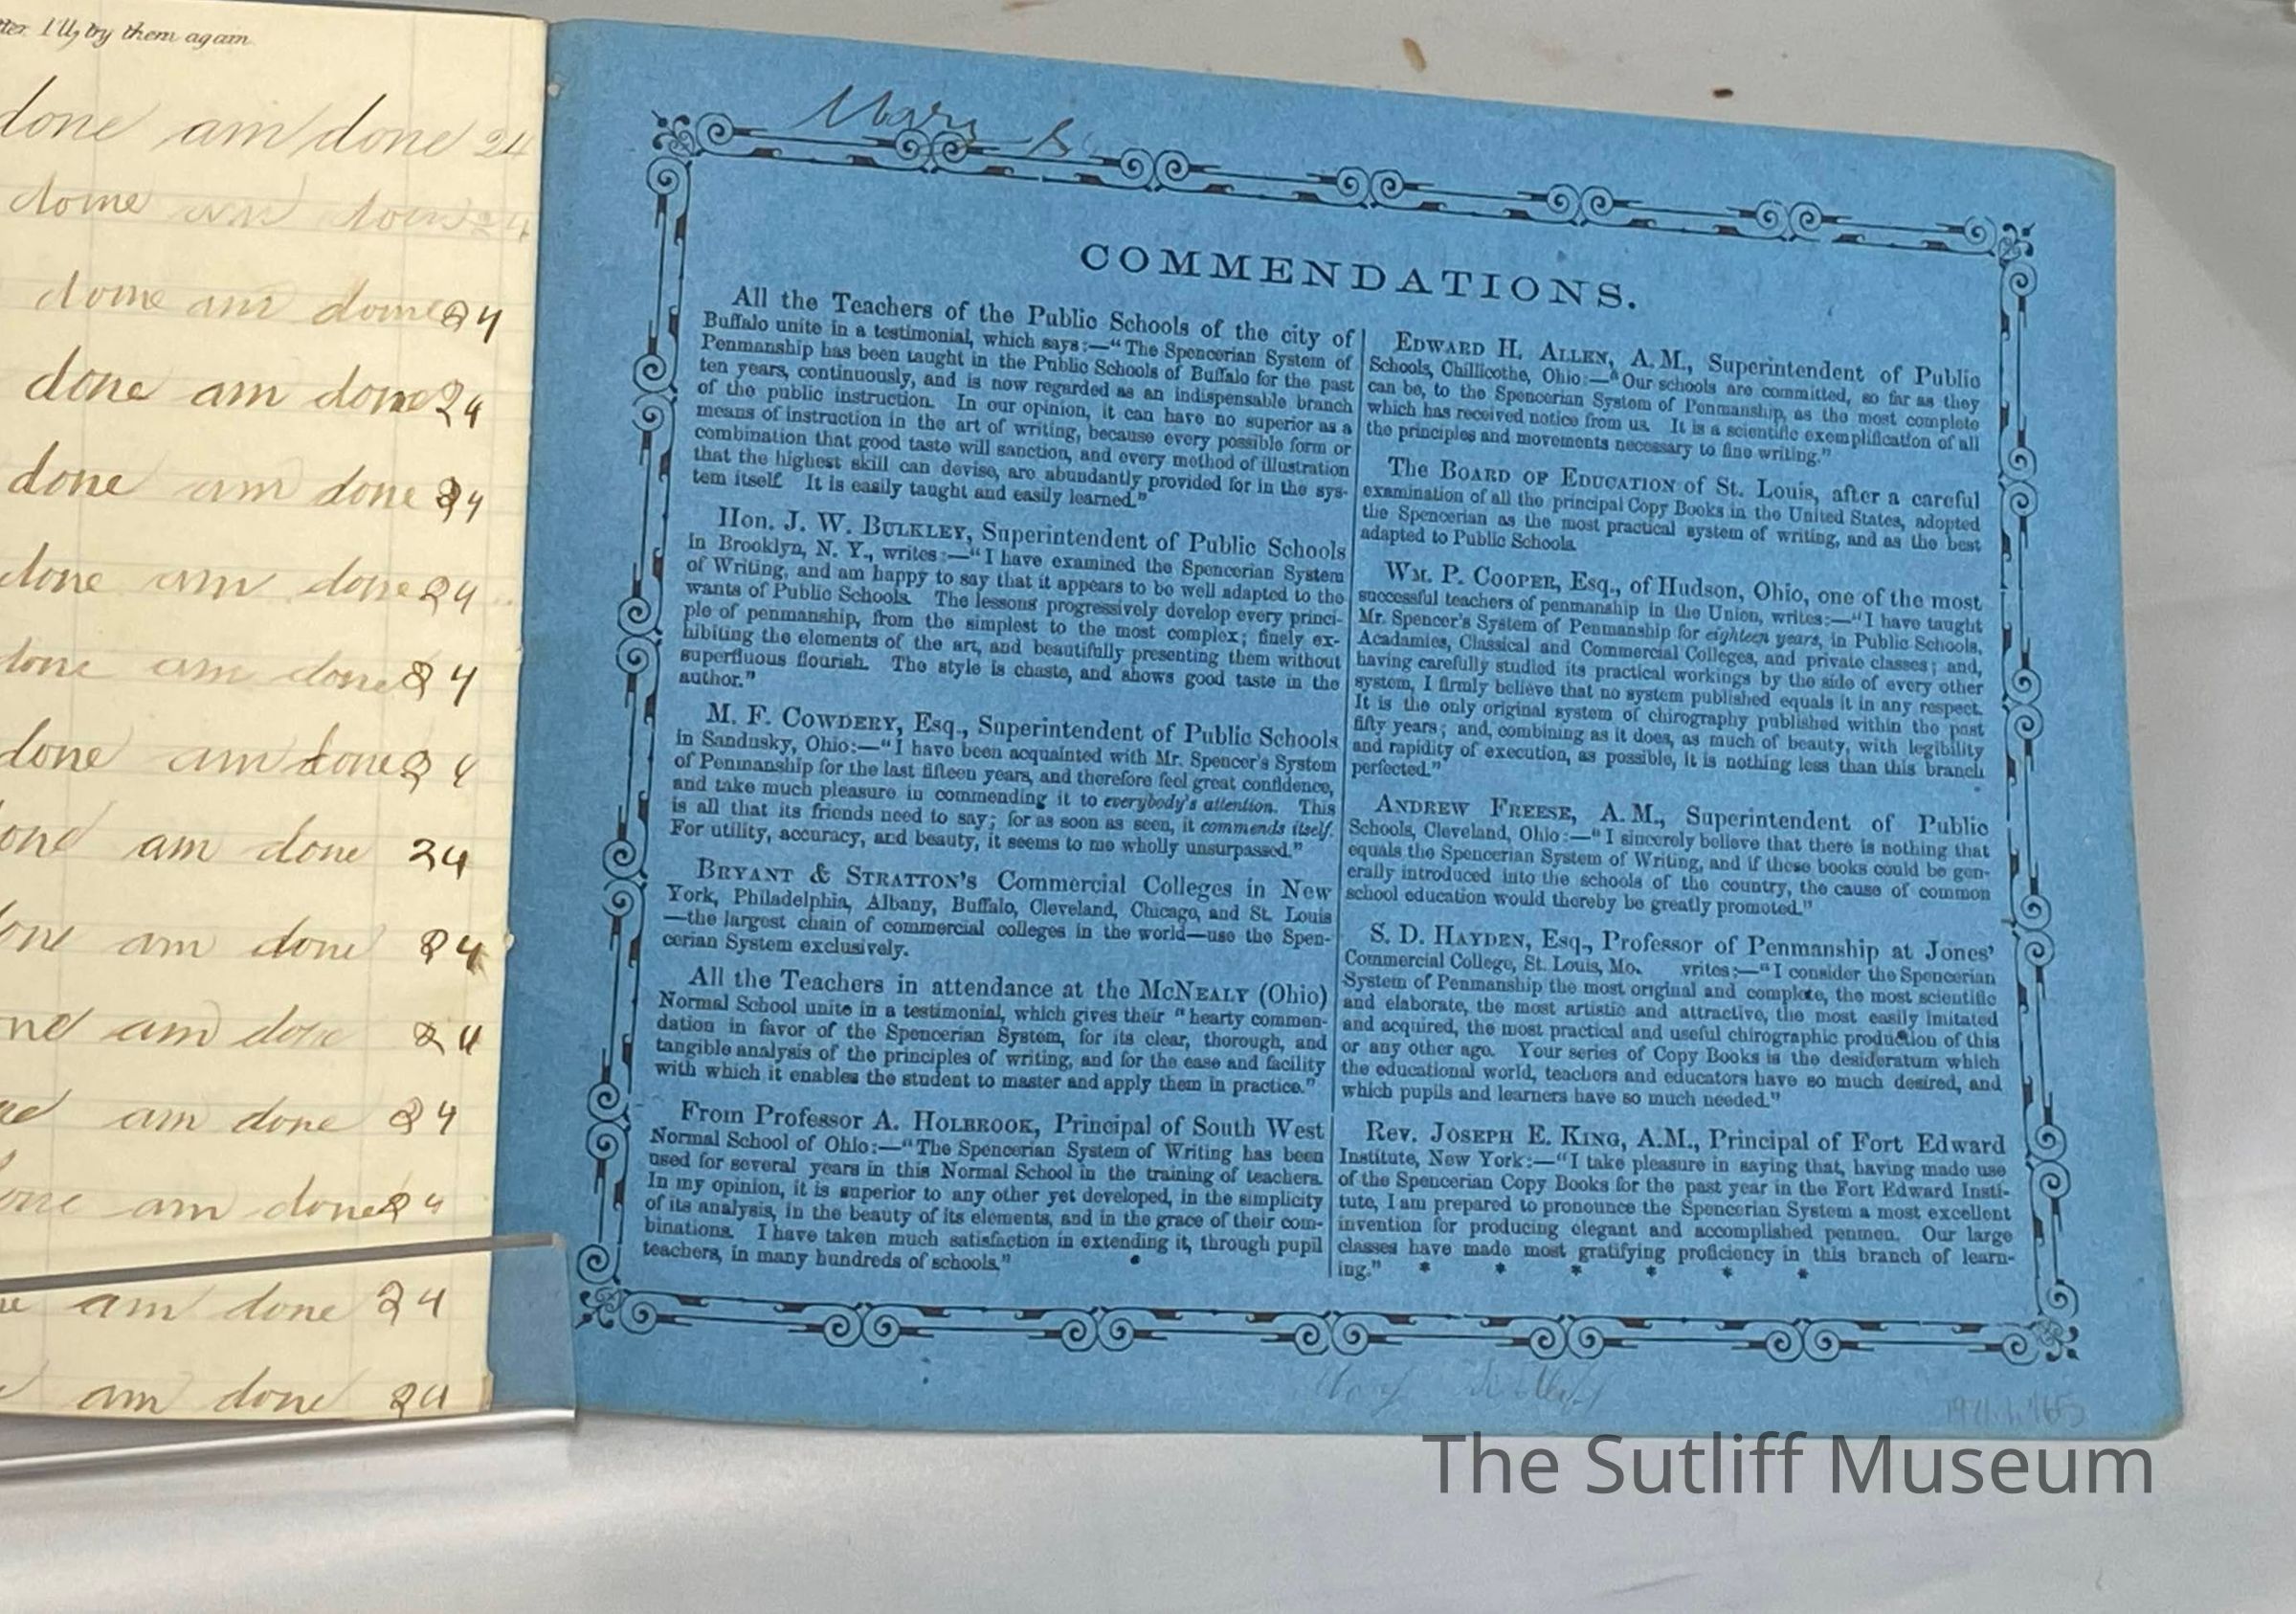 I'll, try them again
done am done 24
dome
dome am dome 24
done am dome 24
done am done 24
done am done 24
done am done 24
done am done 24
am done 24
am done 24
am done 24
am done 24
am done 24
am done 24
am done 24
Mary S
COMMENDATIONS.
All the Teachers of the Public Schools of the city of
Buffalo unite in a testimonial, which says:—"The Spencerian System of
Penmanship has been taught in the Public Schools of Buffalo for the past
ten years, continuously, and is now regarded as an indispensable branch
of the public instruction. In our opinion, it can have no superior as a
means of instruction in the art of writing, because every possible form or
combination that good taste will sanction, and every method of illustration
that the highest skill can devise, are abundantly provided for in the sys-
tem itself. It is easily taught and easily learned."
Hon. J. W. BULKLEY, Superintendent of Public Schools
in Brooklyn, N. Y., writes:—"I have examined the Spencerian System
of Writing, and am happy to say that it appears to be well adapted to the
wants of Public Schools. The lessons progressively develop every princi-
ple of penmanship, from the simplest to the most complex; finely ex-
hibiting the elements of the art, and beautifully presenting them without
superfluous flourish. The style is chaste, and shows good taste in the
author."
M. F. COWDERY, Esq., Superintendent of Public Schools
in Sandusky, Ohio:—"I have been acquainted with Mr. Spencer's System
of Penmanship for the last fifteen years, and therefore feel great confidence,
and take much pleasure in commending it to everybody's attention. This
is all that its friends need to say; for as soon as seen, it commends itself.
For utility, accuracy, and beauty, it seems to me wholly unsurpassed."
BRYANT & STRATTON'S Commercial Colleges in New
York, Philadelphia, Albany, Buffalo, Cleveland, Chicago, and St. Louis
—the largest chain of commercial colleges in the world—use the Spen-
cerian System exclusively.
All the Teachers in attendance at the MCNEALY (Ohio)
Normal School unite in a testimonial, which gives their "hearty commen-
dation in favor of the Spencerian System, for its clear, thorough, and
tangible analysis of the principles of writing, and for the ease and facility
with which it enables the student to master and apply them in practice."
From Professor A. HOLBROOK, Principal of South West
Normal School of Ohio:—"The Spencerian System of Writing has been
used for several years in this Normal School in the training of teachers.
In my opinion, it is superior to any other yet developed, in the simplicity
of its analysis, in the beauty of its elements, and in the grace of their com-
binations. I have taken much satisfaction in extending it, through pupil
teachers, in many hundreds of schools."
EDWARD H. ALLEN, A.M., Superintendent of Public
Schools, Chillicothe, Ohio:—"Our schools are committed, so far as they
can be, to the Spencerian System of Penmanship, as the most complete
which has received notice from us. It is a scientific exemplification of all
the principles and movements necessary to fine writing."
The BOARD OF EDUCATION of St. Louis, after a careful
examination of all the principal Copy Books in the United States, adopted
the Spencerian as the most practical system of writing, and as the best
adapted to Public Schools.
WM. P. COOPER, Esq., of Hudson, Ohio, one of the most
successful teachers of penmanship in the Union, writes:—"I have taught
Mr. Spencer's System of Penmanship for eighteen years, in Public Schools,
Acadamies, Classical and Commercial Colleges, and private classes; and,
having carefully studied its practical workings by the side of every other
system, I firmly believe that no system published equals it in any respect.
It is the only original system of chirography published within the past
fifty years; and, combining as it does, as much of beauty, with legibility
and rapidity of execution, as possible, it is nothing less than this branch
perfected."
ANDREW FREESE, A.M., Superintendent of Public
Schools, Cleveland, Ohio:—"I sincerely believe that there is nothing that
equals the Spencerian System of Writing, and if these books could be gen-
erally introduced into the schools of the country, the cause of common
school education would thereby be greatly promoted."
S. D. HAYDEN, Esq., Professor of Penmanship at Jones'
Commercial College, St. Louis, Mo. vrites:—"I consider the Spencerian
System of Penmanship the most original and complete, the most scientific
and elaborate, the most artistic and attractive, the most easily imitated
and acquired, the most practical and useful chirographic production of this
or any other age. Your series of Copy Books is the desideratum which
the educational world, teachers and educators have so much desired, and
which pupils and learners have so much needed."
Rev. JOSEPH E. KING, A.M., Principal of Fort Edward
Institute, New York:—"I take pleasure in saying that, having made use
of the Spencerian Copy Books for the past year in the Fort Edward Insti-
tute, I am prepared to pronounce the Spencerian System a most excellent
invention for producing elegant and accomplished penmen. Our large
classes have made most gratifying proficiency in this branch of learn-
ing." * * * * * *
The Sutliff Museum